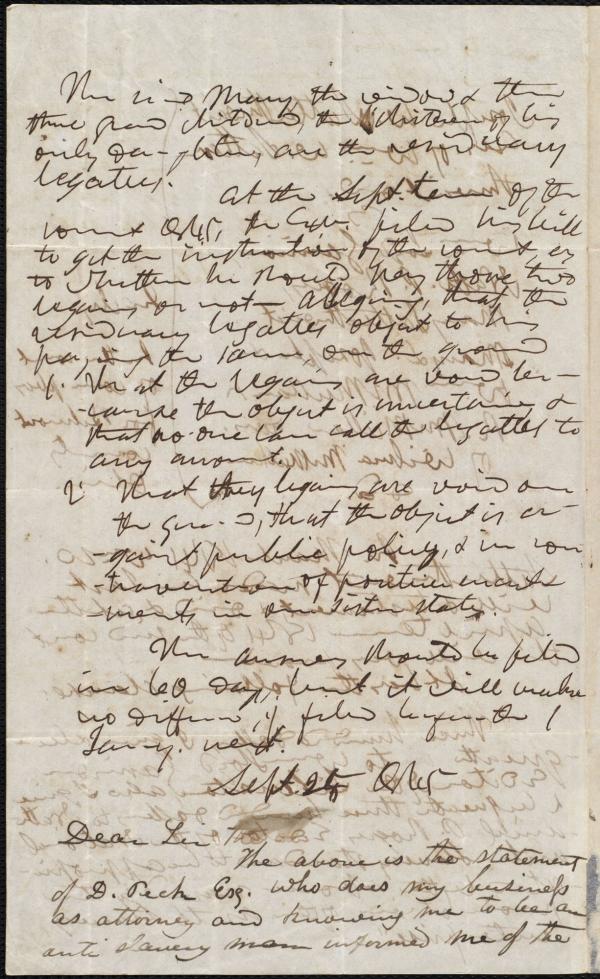 Mary, the widow & the
three grand children, the children of his
only daughter, are the residuary
legatees.
At the Sept. term of the
court 1845, the Exr. filed his bill
to get the instruction of the court, as
to whether he should pay those two
legacies or not - alleging, that the
residuary legatees object to his
paying the same, on the ground
1. That the legacies are void be-
-cause the object is uncertain, &
that no one can call the legatees to
any account.
2. That they legacies are void on
the ground, that the object is a-
-gainst public policy, & in con-
-travention of positive enact-
-ments in our sister states.
The answer should be filed
in 60 days, but it will make
no difference, if filed before the 1
Jany. next.
Sept. 25 1845
Dear Sir
The above is the statement
of D. Peck Esq. who does my business
as attorney and knowing me to be an
anti slavery man informed me of the